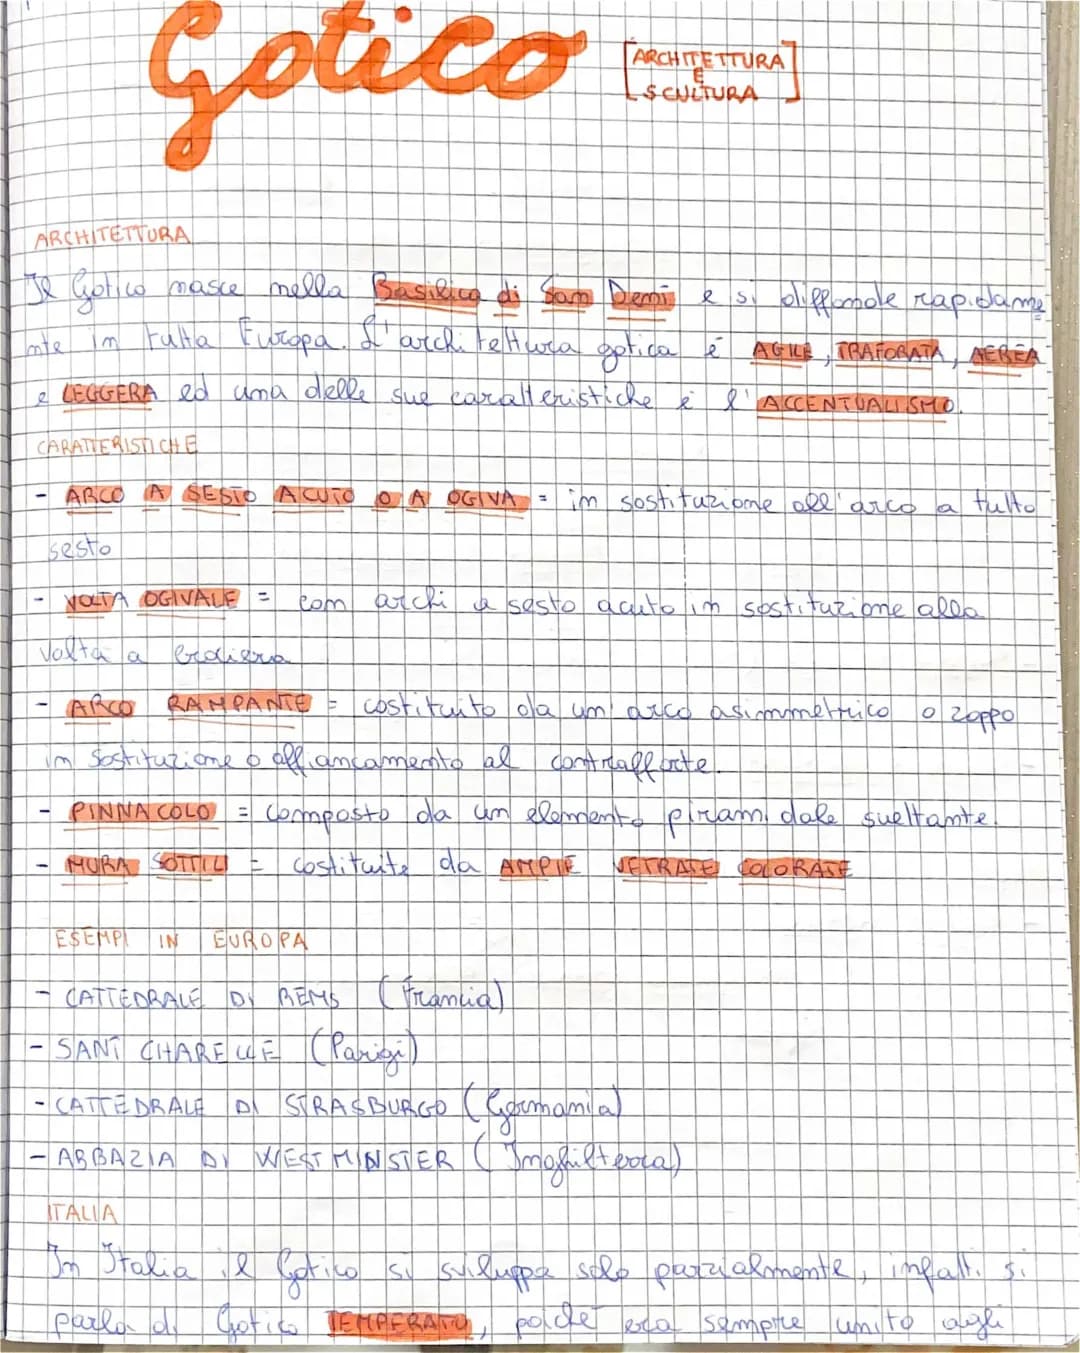 Gotico
[ARCHITETTURA
E
SCULTURA]
ARCHITETTURA
Il Gotico nasce nella Basilica di San Denì e si diffonde rapidame
nte in tutta Europa. L'architettura gotica è AGILE, TRAFORATA, AEREA
e LEGGERA ed una delle sue caratteristiche è l'ACCENTUALISMO.
CARATTERISTICHE
- ARCO A SESTO ACUTO O A OGIVA = in sostituzione all'arco a tutto
sesto
- VOLTA OGIVALE = con archi a sesto acuto in sostituzione alla
volta a crociera
- ARCO RAMPANTE = costituito da un arco asimmetrico o zoppo
in sostituzione o affiancamento al contrafforte.
- PINNACOLO = composto da un elemento piramidale sveltante.
- MURA SOTTILI = costituite da AMPIE VETRATE COLORATE
ESEMPI IN EUROPA
- CATTEDRALE DI REMS (Francia)
- SANT CHARELLE (Parigi)
- CATTEDRALE DI STRASBURGO (Germania)
- ABBAZIA DI WESTMINSTER (Inghilterra)
ITALIA
In Italia il Gotico si sviluppa solo parzialmente, infatti si
parla di Gotico TEMPERATO, poiché era sempre unito agli